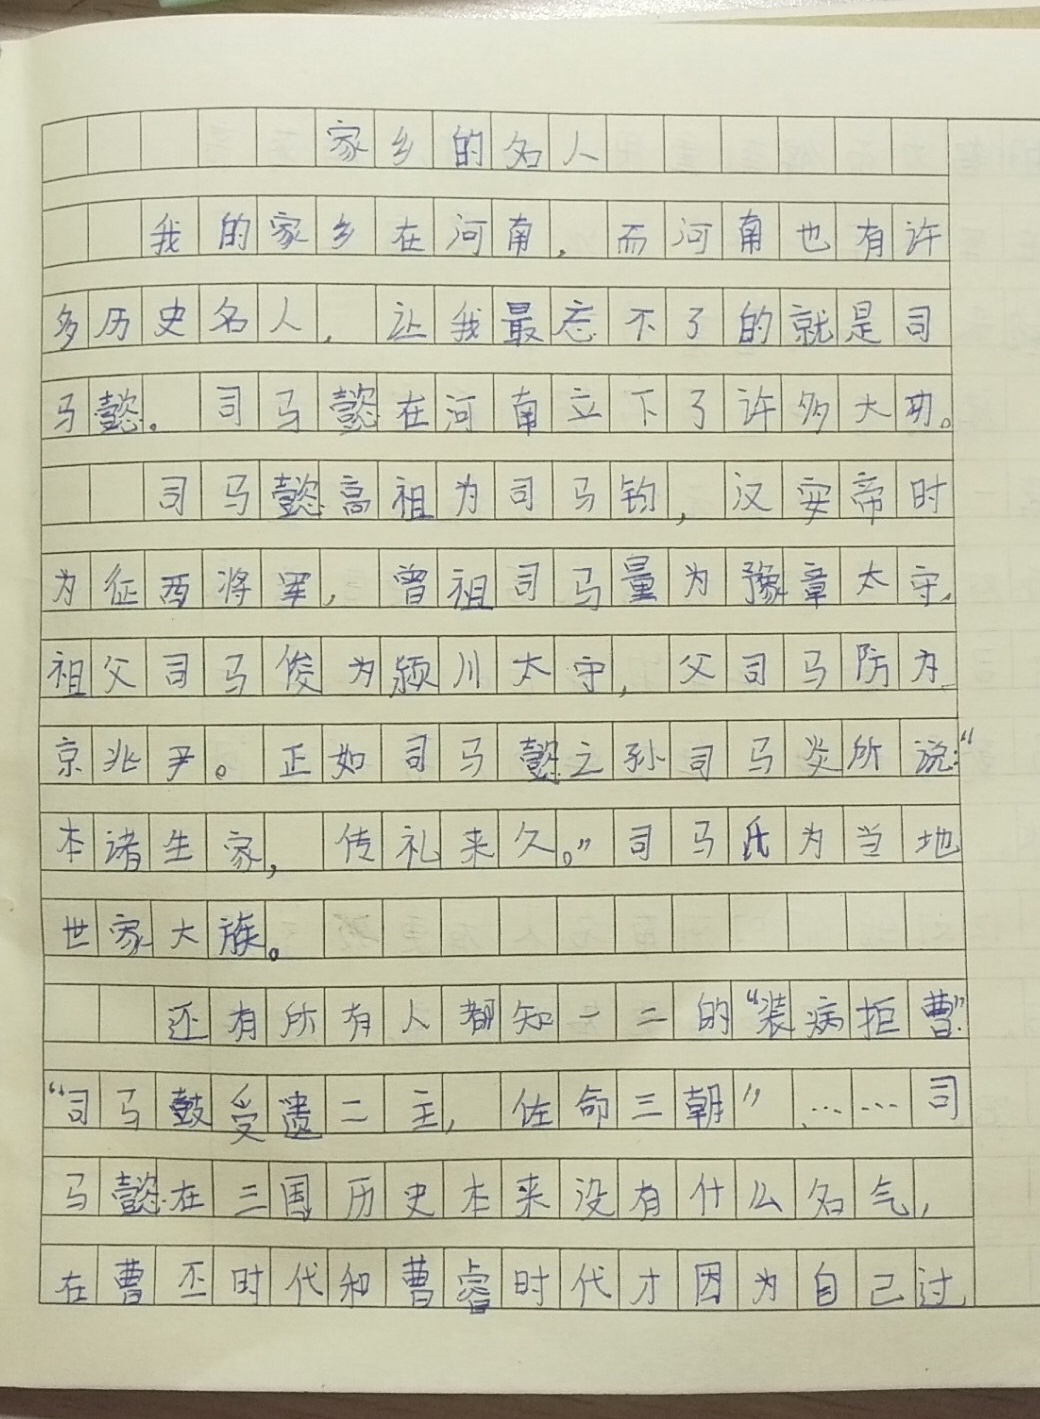 家乡的名人
我的家乡在河南，而河南也有许
多历史名人，让我最忘不了的就是司
马懿。司马懿在河南立下了许多大功。
司马懿高祖为司马钧，汉安帝时
为征西将军，曾祖司马量为豫章太守，
祖父司马俊为颍川太守，父司马防为
京兆尹。正如司马懿之孙司马炎所说：“
本诸生家，传礼来久。”司马氏为当地
世家大族。
还有所有人都知一二的“装病拒曹”
“司马鼓受遗二主，佐命三朝”……司
马懿在三国历史本来没有什么名气，
在曹丕时代和曹睿时代才因为自己过